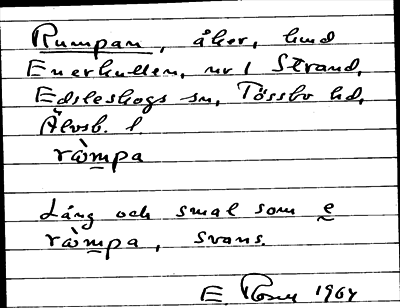 Rumpan, åker, hmd
Enerkullen, nr 1 Strand,
Edsleskogs sn, Tössbo hd,
Älvsb. l.
ràmpa
Lång och smal som e
ràmpa, svans.
E. 1964